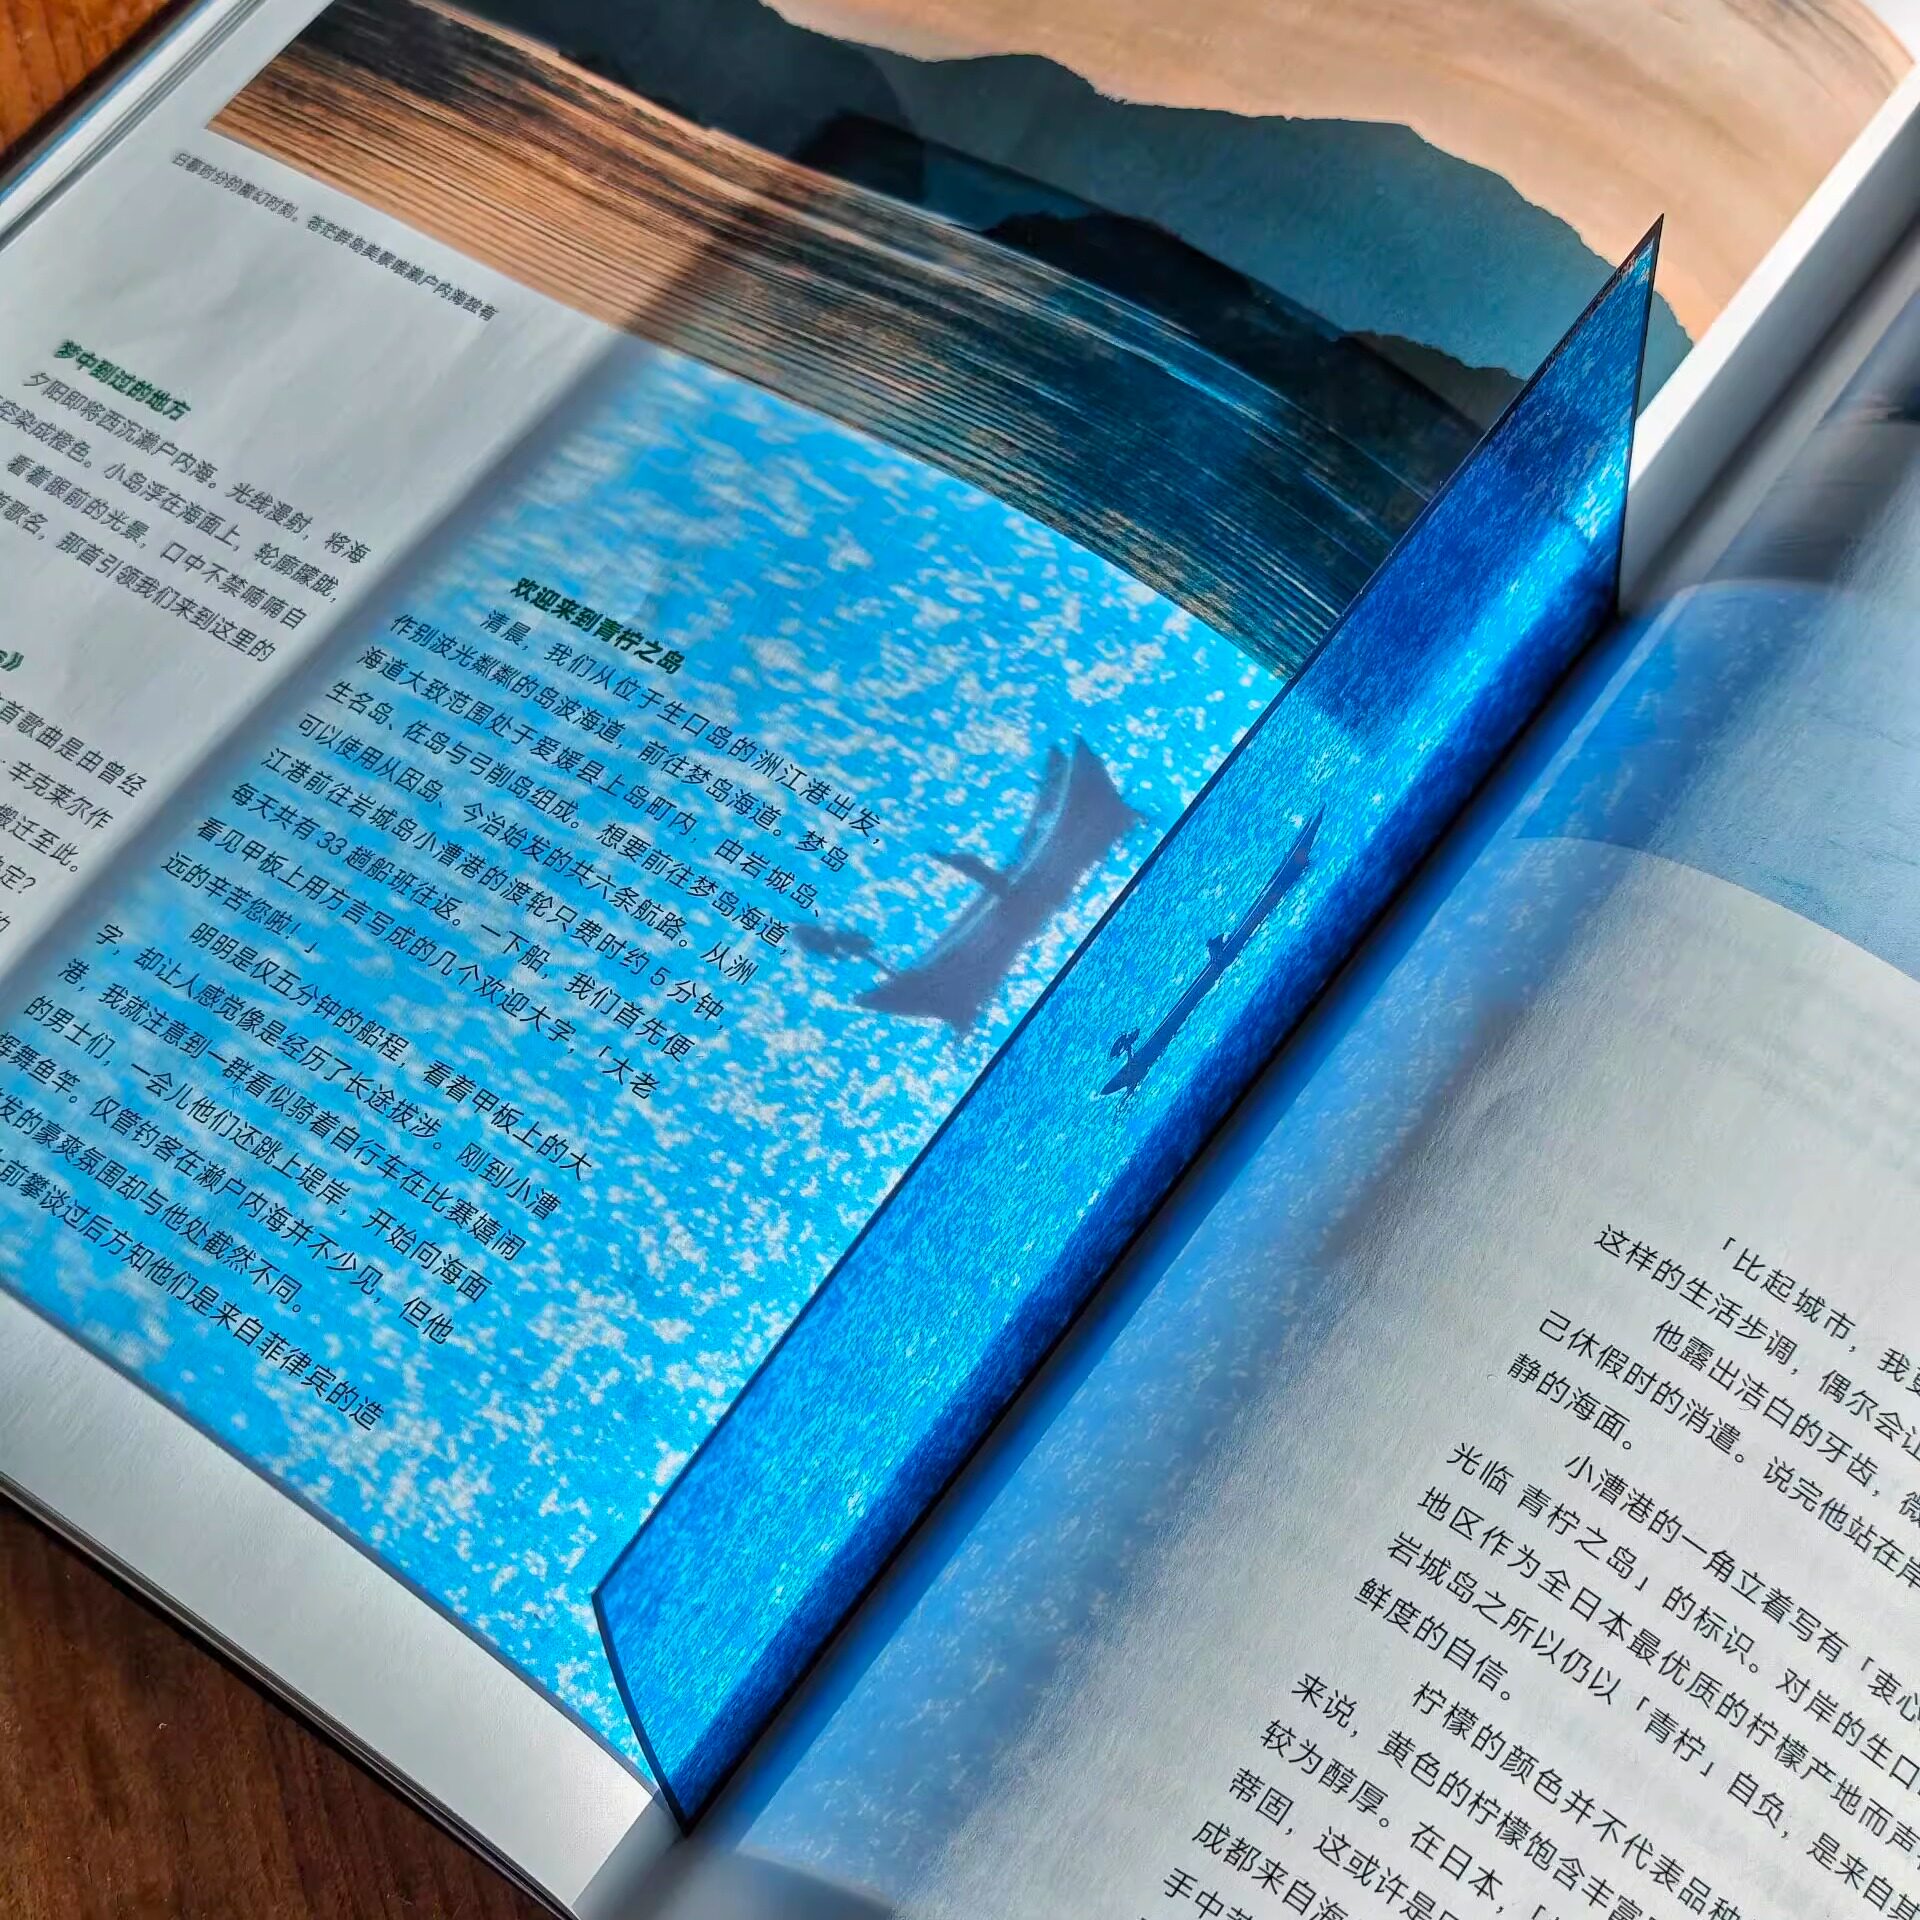 日暮时分的魔幻时刻。苍茫群岛美景唯濑户内海独有
梦中到过的地方
夕阳即将西沉濑户内海。光线漫射，将海
空染成橙色。小岛浮在海面上，轮廓朦胧，
看着眼前的光景，口中不禁喃喃自
首歌名，那首引领我们来到这里的
首歌曲是由曾经
辛克莱尔作
搬迁至此。
定？
的
欢迎来到青柠之岛
清晨，我们从位于生口岛的洲江港出发，
作别波光粼粼的岛波海道，前往梦岛海道。梦岛
海道大致范围处于爱媛县上岛町内，由岩城岛、
生名岛、佐岛与弓削岛组成。想要前往梦岛海道，
可以使用从因岛、今治始发的共六条航路。从洲
江港前往岩城岛小漕港的渡轮只费时约 5 分钟，
每天共有 33 趟船班往返。一下船，我们首先便
看见甲板上用方言写成的几个欢迎大字，「大老
远的辛苦您啦！」
明明是仅五分钟的船程，看着甲板上的大
字，却让人感觉像是经历了长途拔涉。刚到小漕
港，我就注意到一群看似骑着自行车在比赛嬉闹
的男士们，一会儿他们还跳上堤岸，开始向海面
挥舞鱼竿。仅管钓客在濑户内海并不少见，但他
发的豪爽氛围却与他处截然不同。
前攀谈过后方知他们是来自菲律宾的造
「比起城市，我更
这样的生活步调，偶尔会让
他露出洁白的牙齿，微
己休假时的消遣。说完他站在岸
静的海面。
小漕港的一角立着写有「衷心
光临 青柠之岛」的标识。对岸的生口
地区作为全日本最优质的柠檬产地而声
岩城岛之所以仍以「青柠」自负，是来自其
鲜度的自信。
柠檬的颜色并不代表品种
来说，黄色的柠檬饱含丰富
较为醇厚。在日本，
蒂固，这或许是
成都来自海
手中